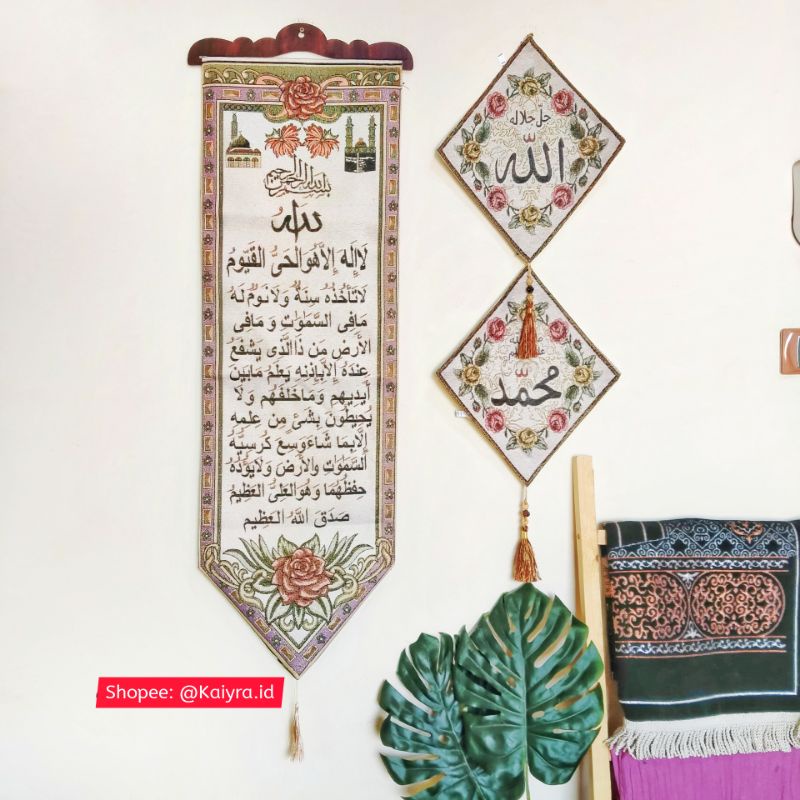 بسم الله الرحمن الرحيم
الله
لَا إِلٰهَ إِلَّا هُوَ الْحَيُّ الْقَيُّومُ
لَا تَأْخُذُهُ سِنَةٌ وَلَا نَوْمٌ لَهُ
مَا فِى السَّمٰوٰتِ وَ مَا فِى
الْأَرْضِ مَن ذَا الَّذِى يَشْفَعُ
عِندَهُ إِلَّا بِإِذْنِهِ يَعْلَمُ مَا بَيْنَ
أَيْدِيهِمْ وَمَا خَلْفَهُمْ وَلَا
يُحِيطُونَ بِشَىْءٍ مِن عِلْمِهِ
إِلَّا بِمَا شَاءَ وَسِعَ كُرْسِيُّهُ
السَّمٰوٰتِ وَالْأَرْضَ وَلَا يَؤُدُهُ
حِفْظُهُمَا وَهُوَ الْعَلِىُّ الْعَظِيمُ
صَدَقَ اللّٰهُ الْعَظِيم
جل جلاله
الله
محمد
Shopee: @Kaiyra.id